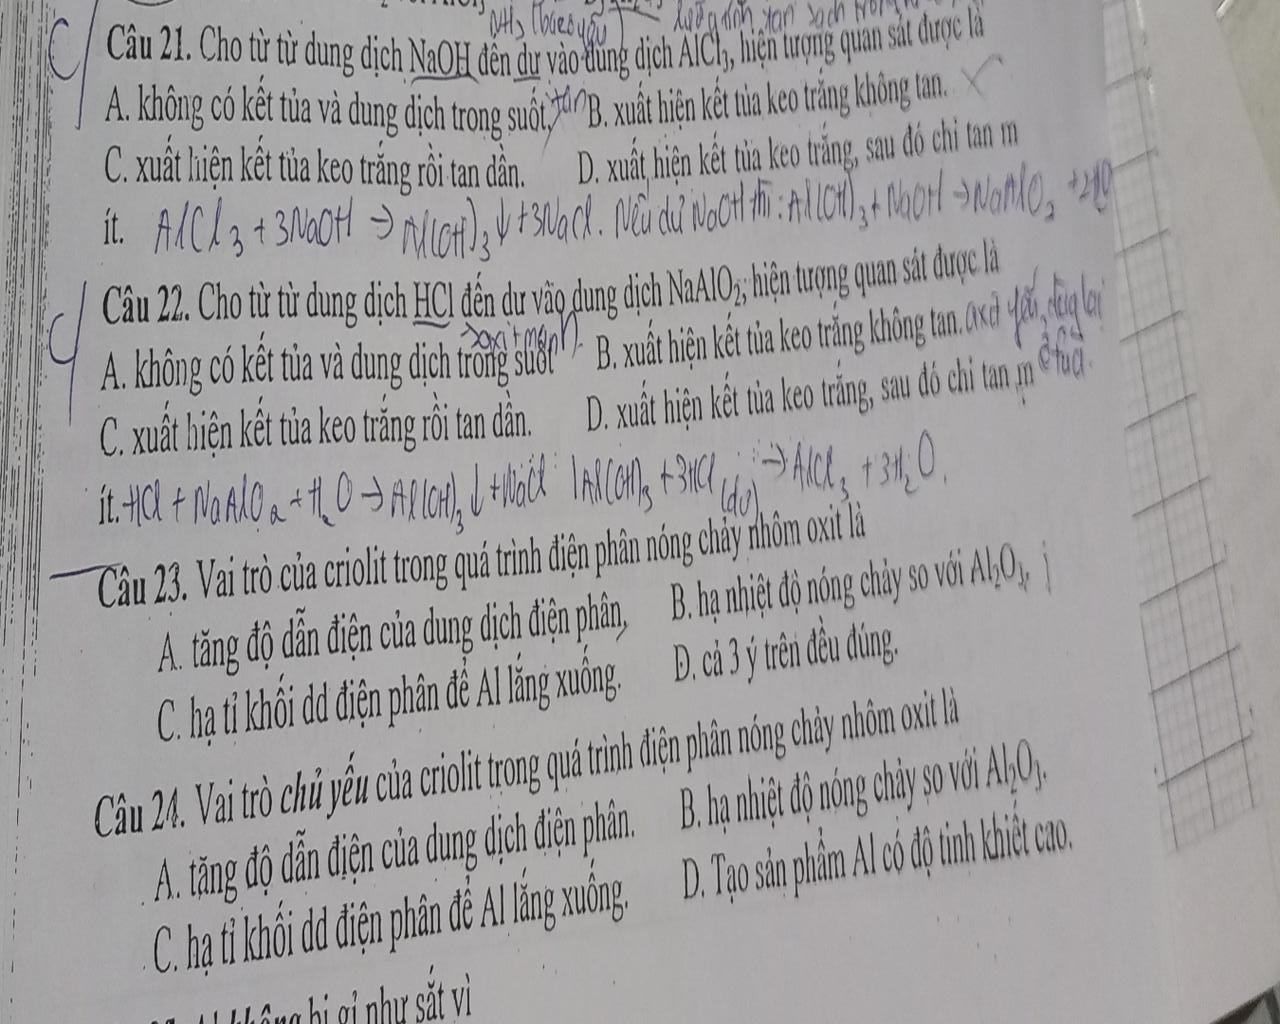 NH3
Câu 21. Cho từ từ dung dịch NaOH đến dư vào dung dịch AlCl3, hiện tượng quan sát được là
A. không có kết tủa và dung dịch trong suốt. B. xuất hiện kết tủa keo trắng không tan.
C. xuất hiện kết tủa keo trắng rồi tan dần. D. xuất hiện kết tủa keo trắng, sau đó chỉ tan m
ít. AlCl3 + 3NaOH → Al(OH)3 ↓ + 3NaCl. Nếu dư NaOH thì: Al(OH)3 + NaOH → NaAlO2 + 2H2O
Câu 22. Cho từ từ dung dịch HCl đến dư vào dung dịch NaAlO2, hiện tượng quan sát được là
axit mạnh
A. không có kết tủa và dung dịch trong suốt. B. xuất hiện kết tủa keo trắng không tan. axit yếu, dừng lại
ở tủa.
C. xuất hiện kết tủa keo trắng rồi tan dần. D. xuất hiện kết tủa keo trắng, sau đó chỉ tan m
ít. HCl + NaAlO2 + H2O → Al(OH)3 ↓ + NaCl Al(OH)3 + 3HCl (dư) → AlCl3 + 3H2O.
Câu 23. Vai trò của criolit trong quá trình điện phân nóng chảy nhôm oxit là
A. tăng độ dẫn điện của dung dịch điện phân, B. hạ nhiệt độ nóng chảy so với Al2O3,
C. hạ tỉ khối dd điện phân để Al lắng xuống. D. cả 3 ý trên đều đúng.
Câu 24. Vai trò chủ yếu của criolit trong quá trình điện phân nóng chảy nhôm oxit là
A. tăng độ dẫn điện của dung dịch điện phân. B. hạ nhiệt độ nóng chảy so với Al2O3.
C. hạ tỉ khối dd điện phân để Al lắng xuống. D. Tạo sản phẩm Al có độ tinh khiết cao.
không bị gỉ như sắt vì